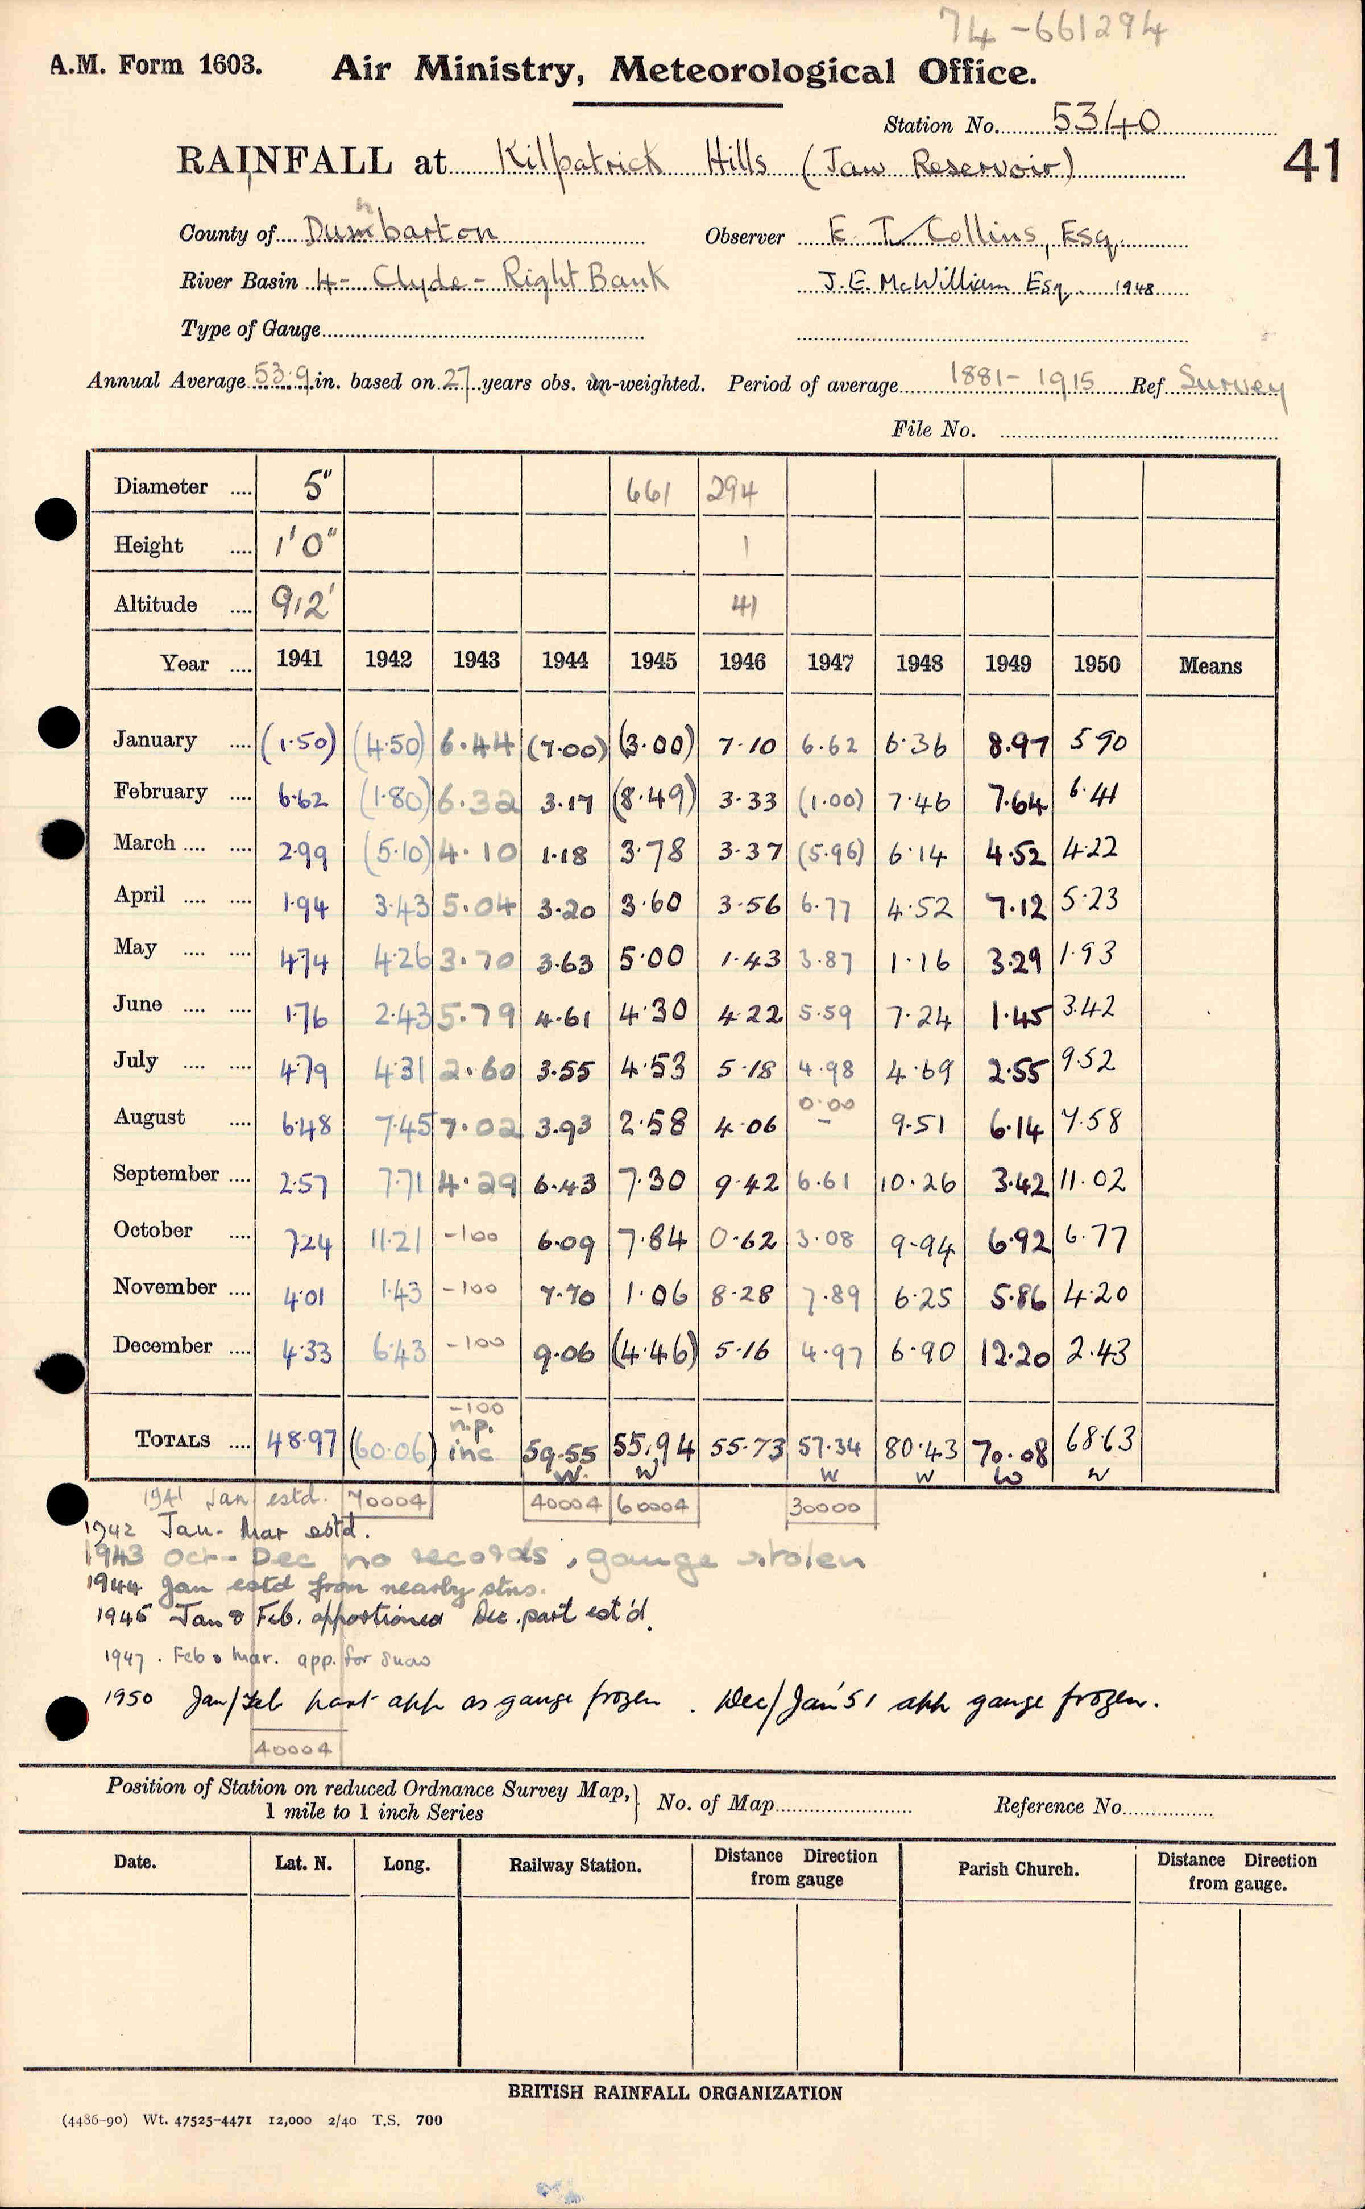 74-661294
A.M. Form 1603. Air Ministry, Meteorological Office.
Station No. 5340
RAINFALL at Kilpatrick Hills (Jaw Reservoir) 41
County of Dumbarton Observer E. T. Collins, Esq.
River Basin 4- Clyde - Right Bank J.E. McWilliam Esq. 1948
Type of Gauge
Annual Average 53.9 in. based on 27 years obs. un-weighted. Period of average 1881-1915 Ref. Survey
File No.
Diameter .... 5" 661 294
Height .... 1'0" 1
Altitude .... 912' 41
Year .... 1941 1942 1943 1944 1945 1946 1947 1948 1949 1950 Means
January .... (1.50) (4.50) 6.44 (7.00) (3.00) 7.10 6.62 6.36 8.97 5.90
February .... 6.62 (1.80) 6.32 3.17 (8.49) 3.33 (1.00) 7.46 7.64 6.41
March .... .... 2.99 (5.10) 4.10 1.18 3.78 3.37 (5.96) 6.14 4.52 4.22
April .... .... 1.94 3.43 5.04 3.20 3.60 3.56 6.77 4.52 7.12 5.23
May .... .... 4.74 4.26 3.70 3.63 5.00 1.43 3.87 1.16 3.29 1.93
June .... .... 1.76 2.43 5.79 4.61 4.30 4.22 5.59 7.24 1.45 3.42
July .... .... 4.79 4.31 2.60 3.55 4.53 5.18 4.98 4.69 2.55 9.52
August .... 6.48 7.45 7.02 3.93 2.58 4.06 0.00 - 9.51 6.14 7.58
September .... 2.57 7.71 4.29 6.43 7.30 9.42 6.61 10.26 3.42 11.02
October .... 7.24 11.21 -100 6.09 7.84 0.62 3.08 9.94 6.92 6.77
November .... 4.01 1.43 -100 7.70 1.06 8.28 7.89 6.25 5.86 4.20
December .... 4.33 6.43 -100 9.06 (4.46) 5.16 4.97 6.90 12.20 2.43
-100
n.p.
TOTALS .... 48.97 (60.06) inc 59.55 55.94 55.73 57.34 80.43 70.08 68.63
W W W W W W
1941 Jan estd. 70004 40004 60004 30000
1942 Jan - Mar estd.
1943 Oct - Dec no records, gauge stolen
1944 Jan estd from nearby stns.
1945 Jan & Feb. apportioned Dec. part est'd.
1947. Feb & Mar. app. for snow
1950 Jan/Feb part app as gauge frozen. Dec/Jan '51 app gauge frozen.
40004
Position of Station on reduced Ordnance Survey Map,
1 mile to 1 inch Series
No. of Map Reference No.
Date. Lat. N. Long. Railway Station. Distance Direction from gauge Parish Church. Distance Direction from gauge.
BRITISH RAINFALL ORGANIZATION
(4486-90) Wt. 47525-4471 12,000 2/40 T.S. 700